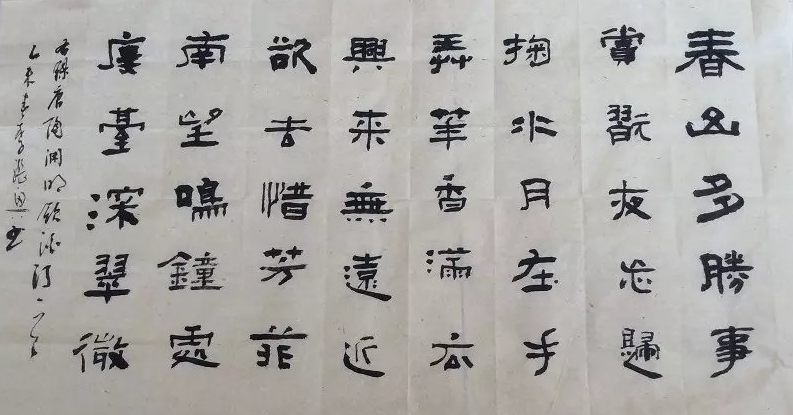 春山多勝事
賞翫夜忘歸
掬水月在手
弄華香滿衣
興來無遠近
欲去惜芳菲
南望鳴鐘處
廔臺深翠微
右錄唐陶淵明飲酒詩一首
乙未春書